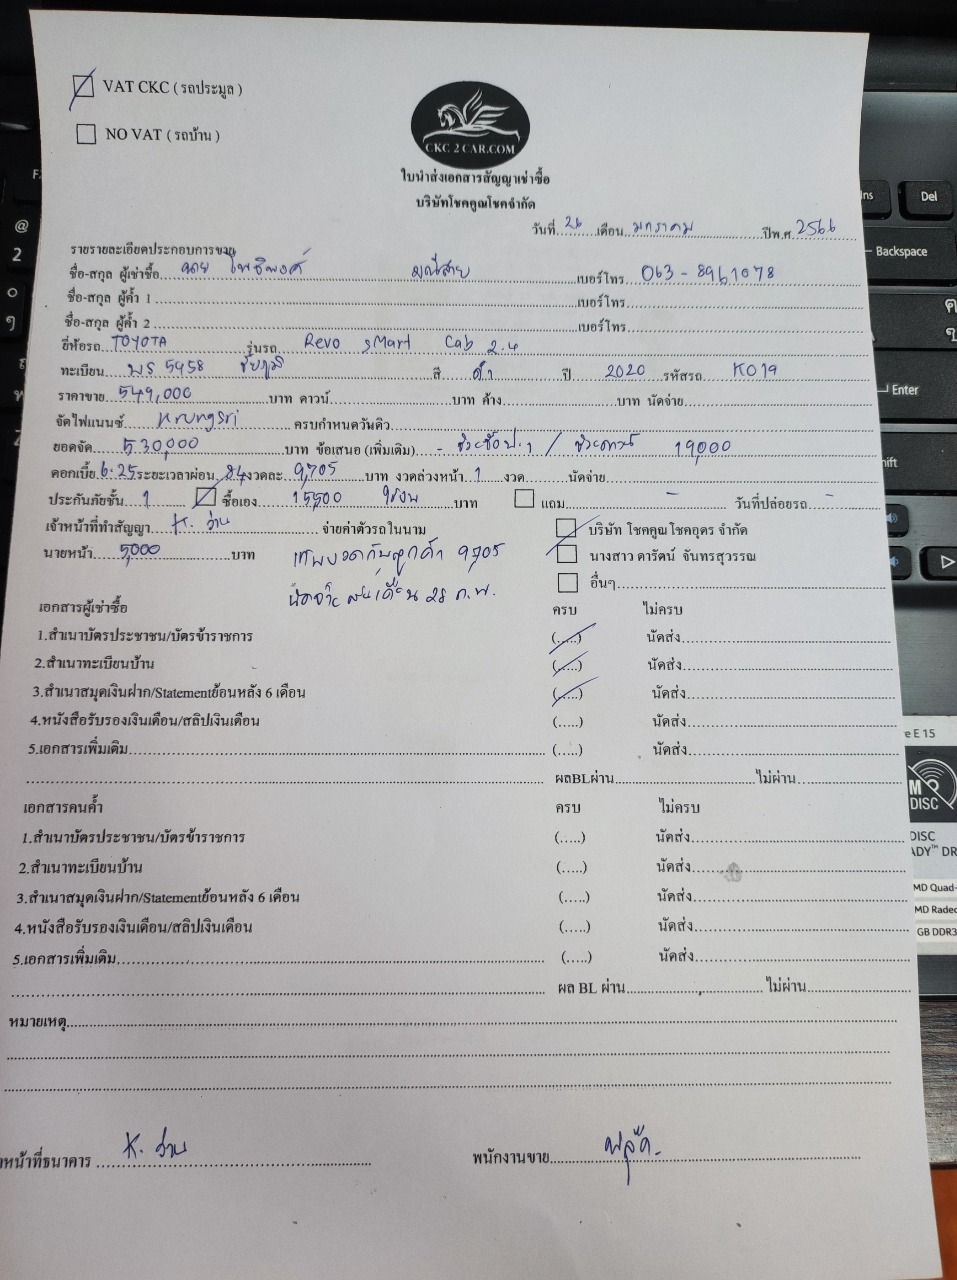 VAT CKC ( รถประมูล )
NO VAT ( รถบ้าน )
CKC 2 CAR.COM
ใบนำส่งเอกสารสัญญาเช่าซื้อ
บริษัทโชคคูณโชคจำกัด
วันที่ 26 เดือน มกราคม ปีพ.ศ. 2566
รายรายละเอียดประกอบการขาย
ชื่อ-สกุล ผู้เช่าซื้อ นาย โพธิพงศ์ มณีสาย เบอร์โทร 063-8961078
ชื่อ-สกุล ผู้ค้ำ 1 เบอร์โทร
ชื่อ-สกุล ผู้ค้ำ 2 เบอร์โทร
ยี่ห้อรถ TOYOTA รุ่นรถ Revo sMart Cab 2.4
ทะเบียน 5958 ชัยภูมิ สี ดำ ปี 2020 รหัสรถ K019
ราคาขาย 549,000 บาท ดาวน์ บาท ค้าง บาท นัดจ่าย
จัดไฟแนนซ์ krungsri ครบกำหนดวันคิว
ยอดจัด 530,000 บาท ข้อเสนอ (เพิ่มเติม) 19,000
ดอกเบี้ย 6.25 ระยะเวลาผ่อน 84 งวดละ 9,705 บาท งวดล่วงหน้า 1 งวด นัดจ่าย
ประกันภัยชั้น 1 ซื้อเอง 15,500 บาท แถม - วันที่ปล่อยรถ -
เจ้าหน้าที่ทำสัญญา K. ว่าน จ่ายค่าตัวรถในนาม บริษัท โชคคูณโชคอุดร จำกัด
นายหน้า 5,000 บาท งวดกับลูกค้า 9705 นางสาว ดารัตน์ จันทรสุวรรณ
28 ก.พ. อื่นๆ
เอกสารผู้เช่าซื้อ ครบ ไม่ครบ
1.สำเนาบัตรประชาชน/บัตรข้าราชการ (.....) นัดส่ง
2.สำเนาทะเบียนบ้าน (.....) นัดส่ง
3.สำเนาสมุดเงินฝาก/Statementย้อนหลัง 6 เดือน (.....) นัดส่ง
4.หนังสือรับรองเงินเดือน/สลิปเงินเดือน (.....) นัดส่ง
5.เอกสารเพิ่มเติม (.....) นัดส่ง
ผลBLผ่าน ไม่ผ่าน
เอกสารคนค้ำ ครบ ไม่ครบ
1.สำเนาบัตรประชาชน/บัตรข้าราชการ (.....) นัดส่ง
2.สำเนาทะเบียนบ้าน (.....) นัดส่ง
3.สำเนาสมุดเงินฝาก/Statementย้อนหลัง 6 เดือน (.....) นัดส่ง
4.หนังสือรับรองเงินเดือน/สลิปเงินเดือน (.....) นัดส่ง
5.เอกสารเพิ่มเติม (.....) นัดส่ง
ผล BL ผ่าน ไม่ผ่าน
หมายเหตุ
หน้าที่ธนาคาร K. ว่าน พนักงานขาย
Del
Backspace
Enter